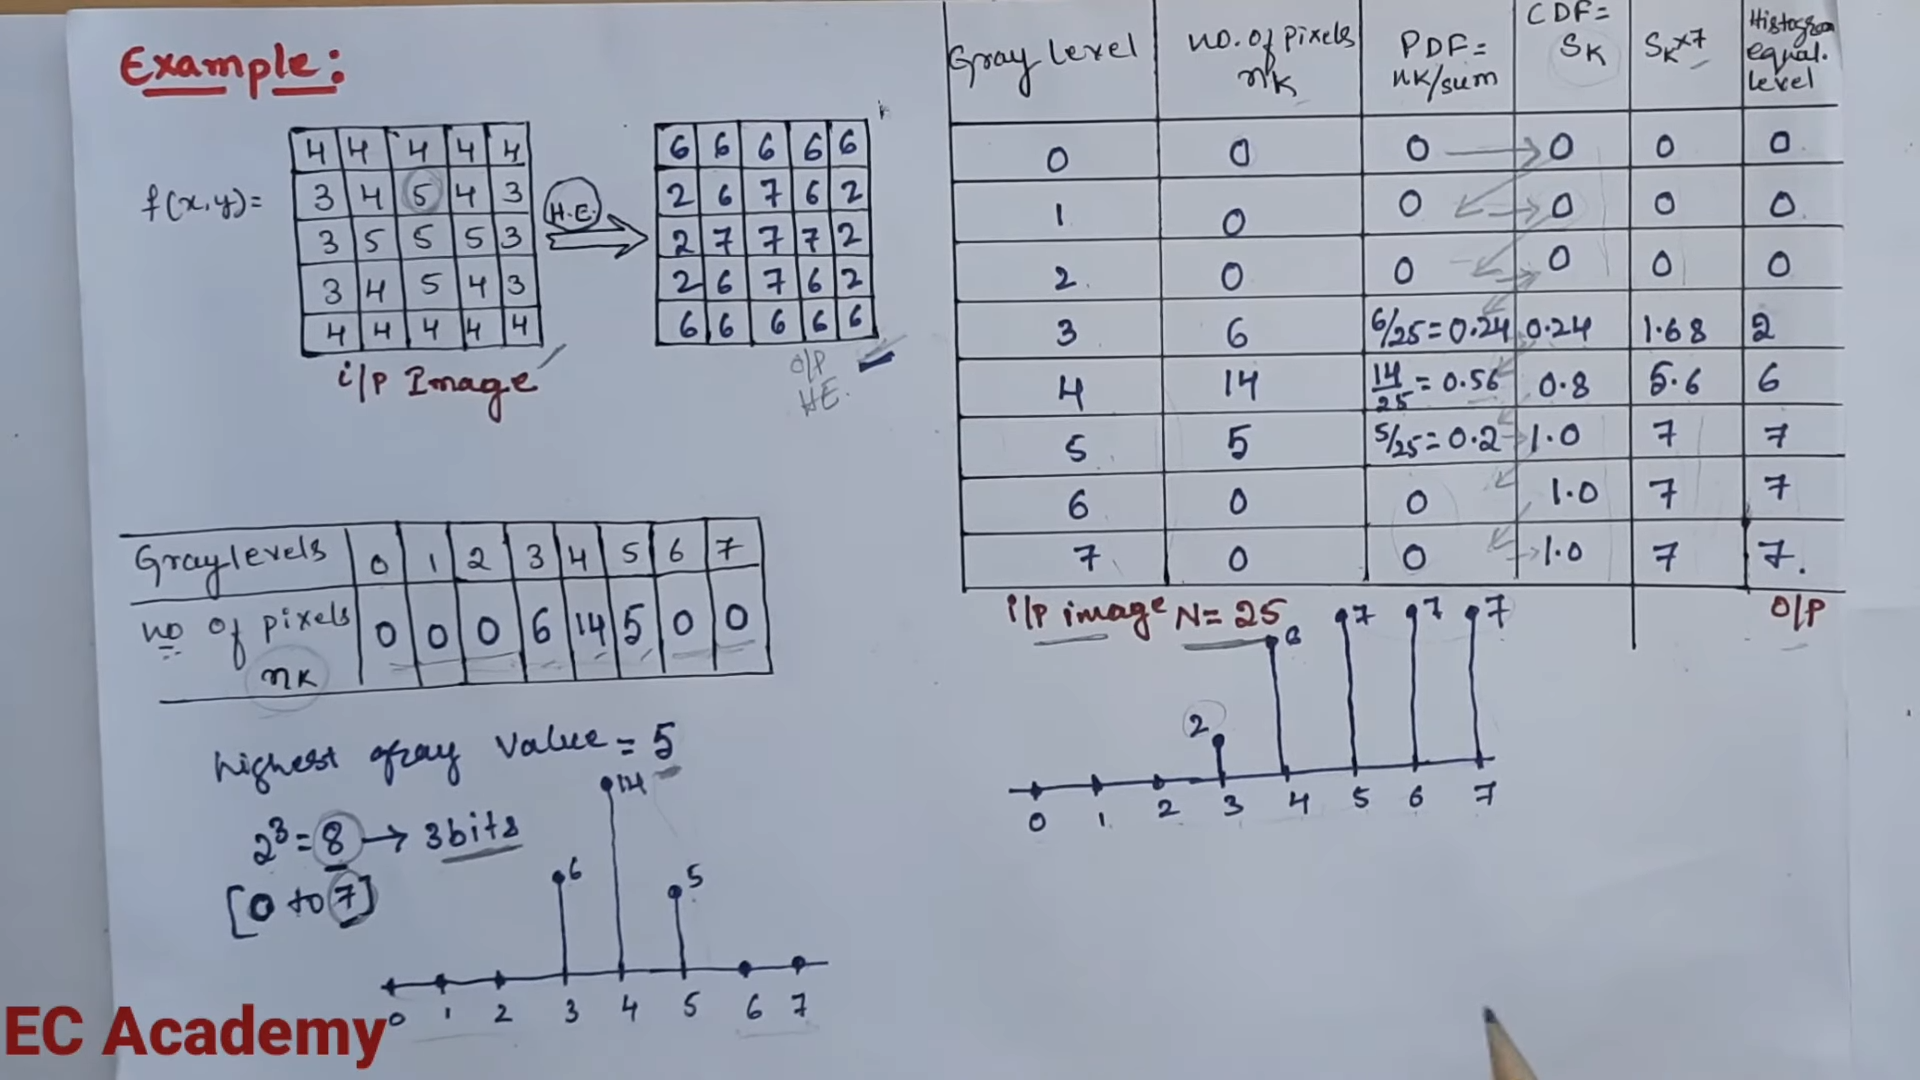 Example:
f(x,y)=
4 4 4 4 4
3 4 5 4 3
3 5 5 5 3
3 4 5 4 3
4 4 4 4 4
i/p Image
H.E.
6 6 6 6 6
2 6 7 6 2
2 7 7 7 2
2 6 7 6 2
6 6 6 6 6
O/P
HE.
Gray levels 0 1 2 3 4 5 6 7
no of pixels nK 0 0 0 6 14 5 0 0
highest gray value = 5
2³=8 → 3bits
[0 to 7]
6 14 5
0 1 2 3 4 5 6 7
Gray level no. of pixels nK PDF= nK/sum CDF= SK SK×7 Histogram equal. level
0 0 0 0 0 0
1 0 0 0 0 0
2 0 0 0 0 0
3 6 6/25=0.24 0.24 1.68 2
4 14 14/25=0.56 0.8 5.6 6
5 5 5/25=0.2 1.0 7 7
6 0 0 1.0 7 7
7 0 0 1.0 7 7.
i/p image N=25 O/P
2 6 7 7 7
0 1 2 3 4 5 6 7
EC Academy